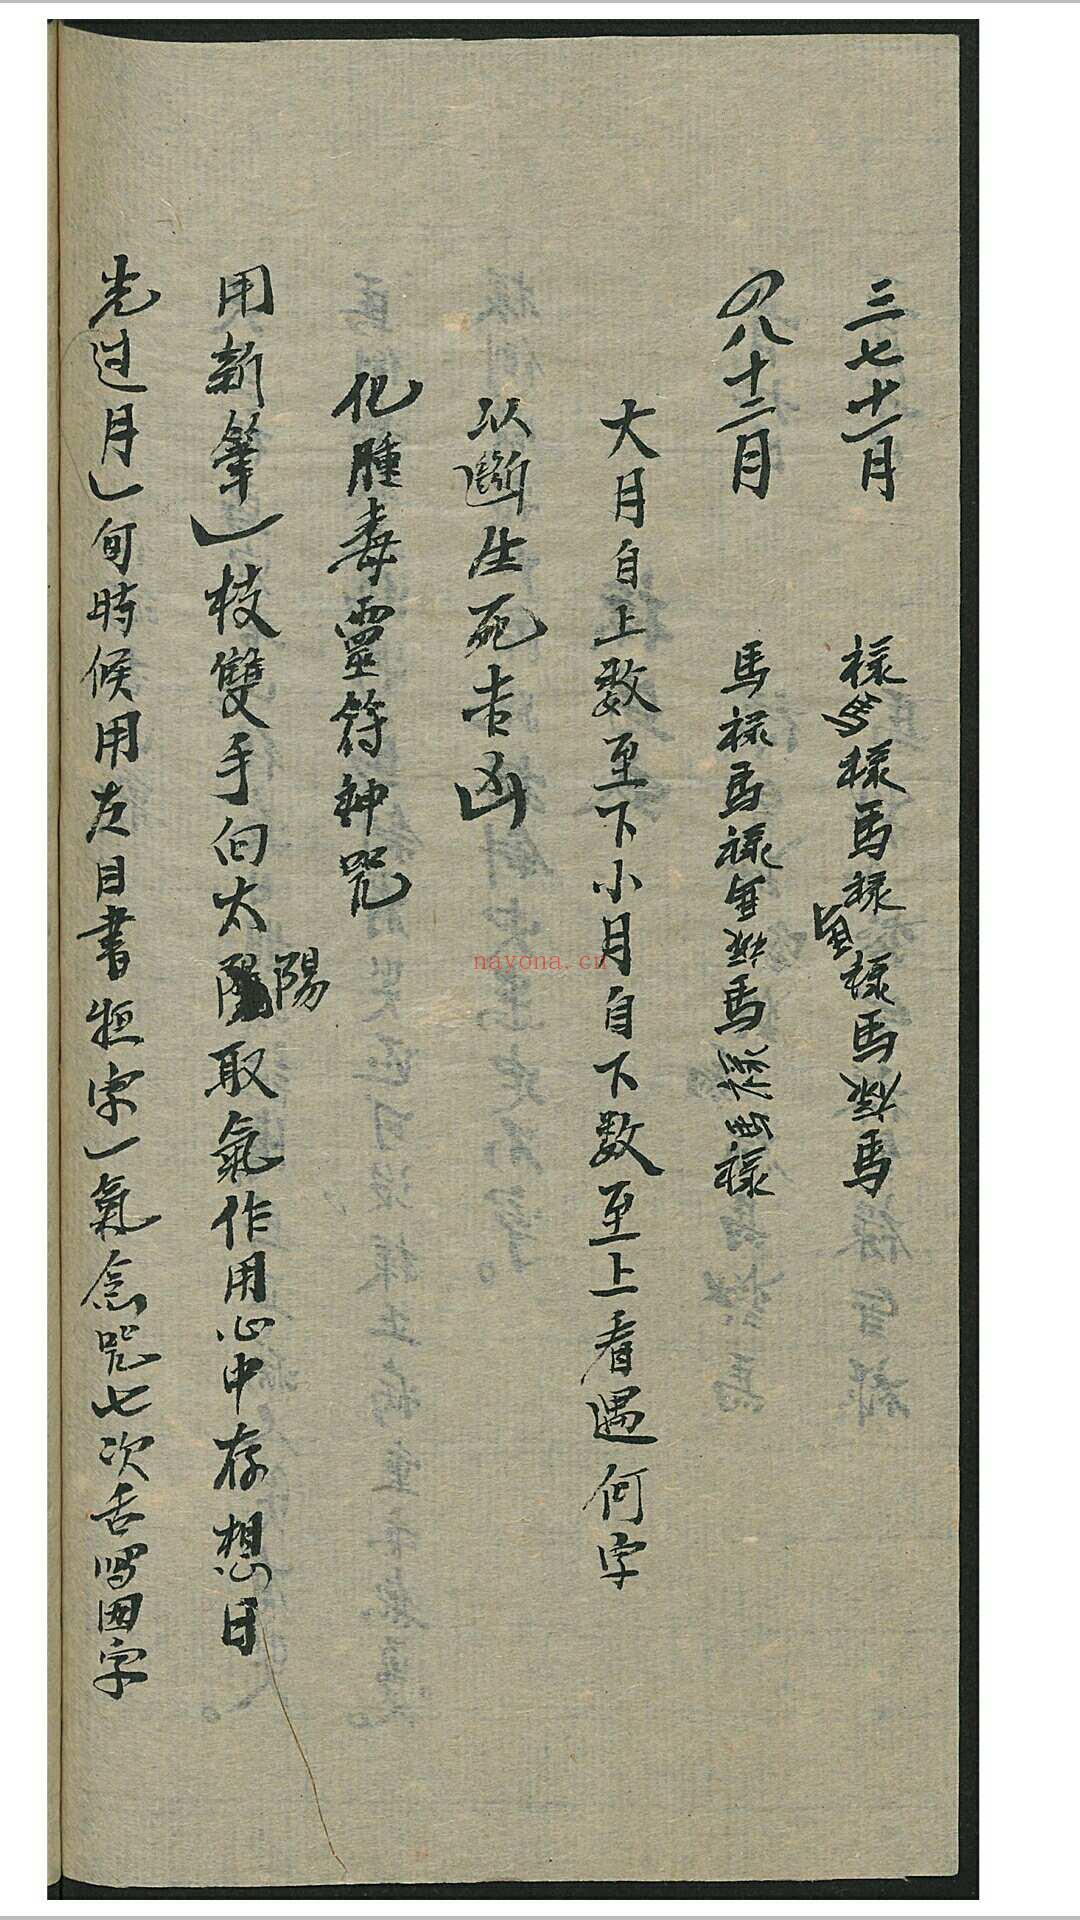 三七十一月 禄馬禄馬禄馬禄馬禄馬
四八十二月 馬禄馬禄馬禄馬禄馬禄
大月自上数至下小月自下數至上看遇何字
以斷生死吉凶
化腫毒靈符神咒
用新筆一枝雙手向太陽取氣作用心中存想日
光过月一旬時候用左目書 字一氣念咒七次舌写四字
nayona.cn